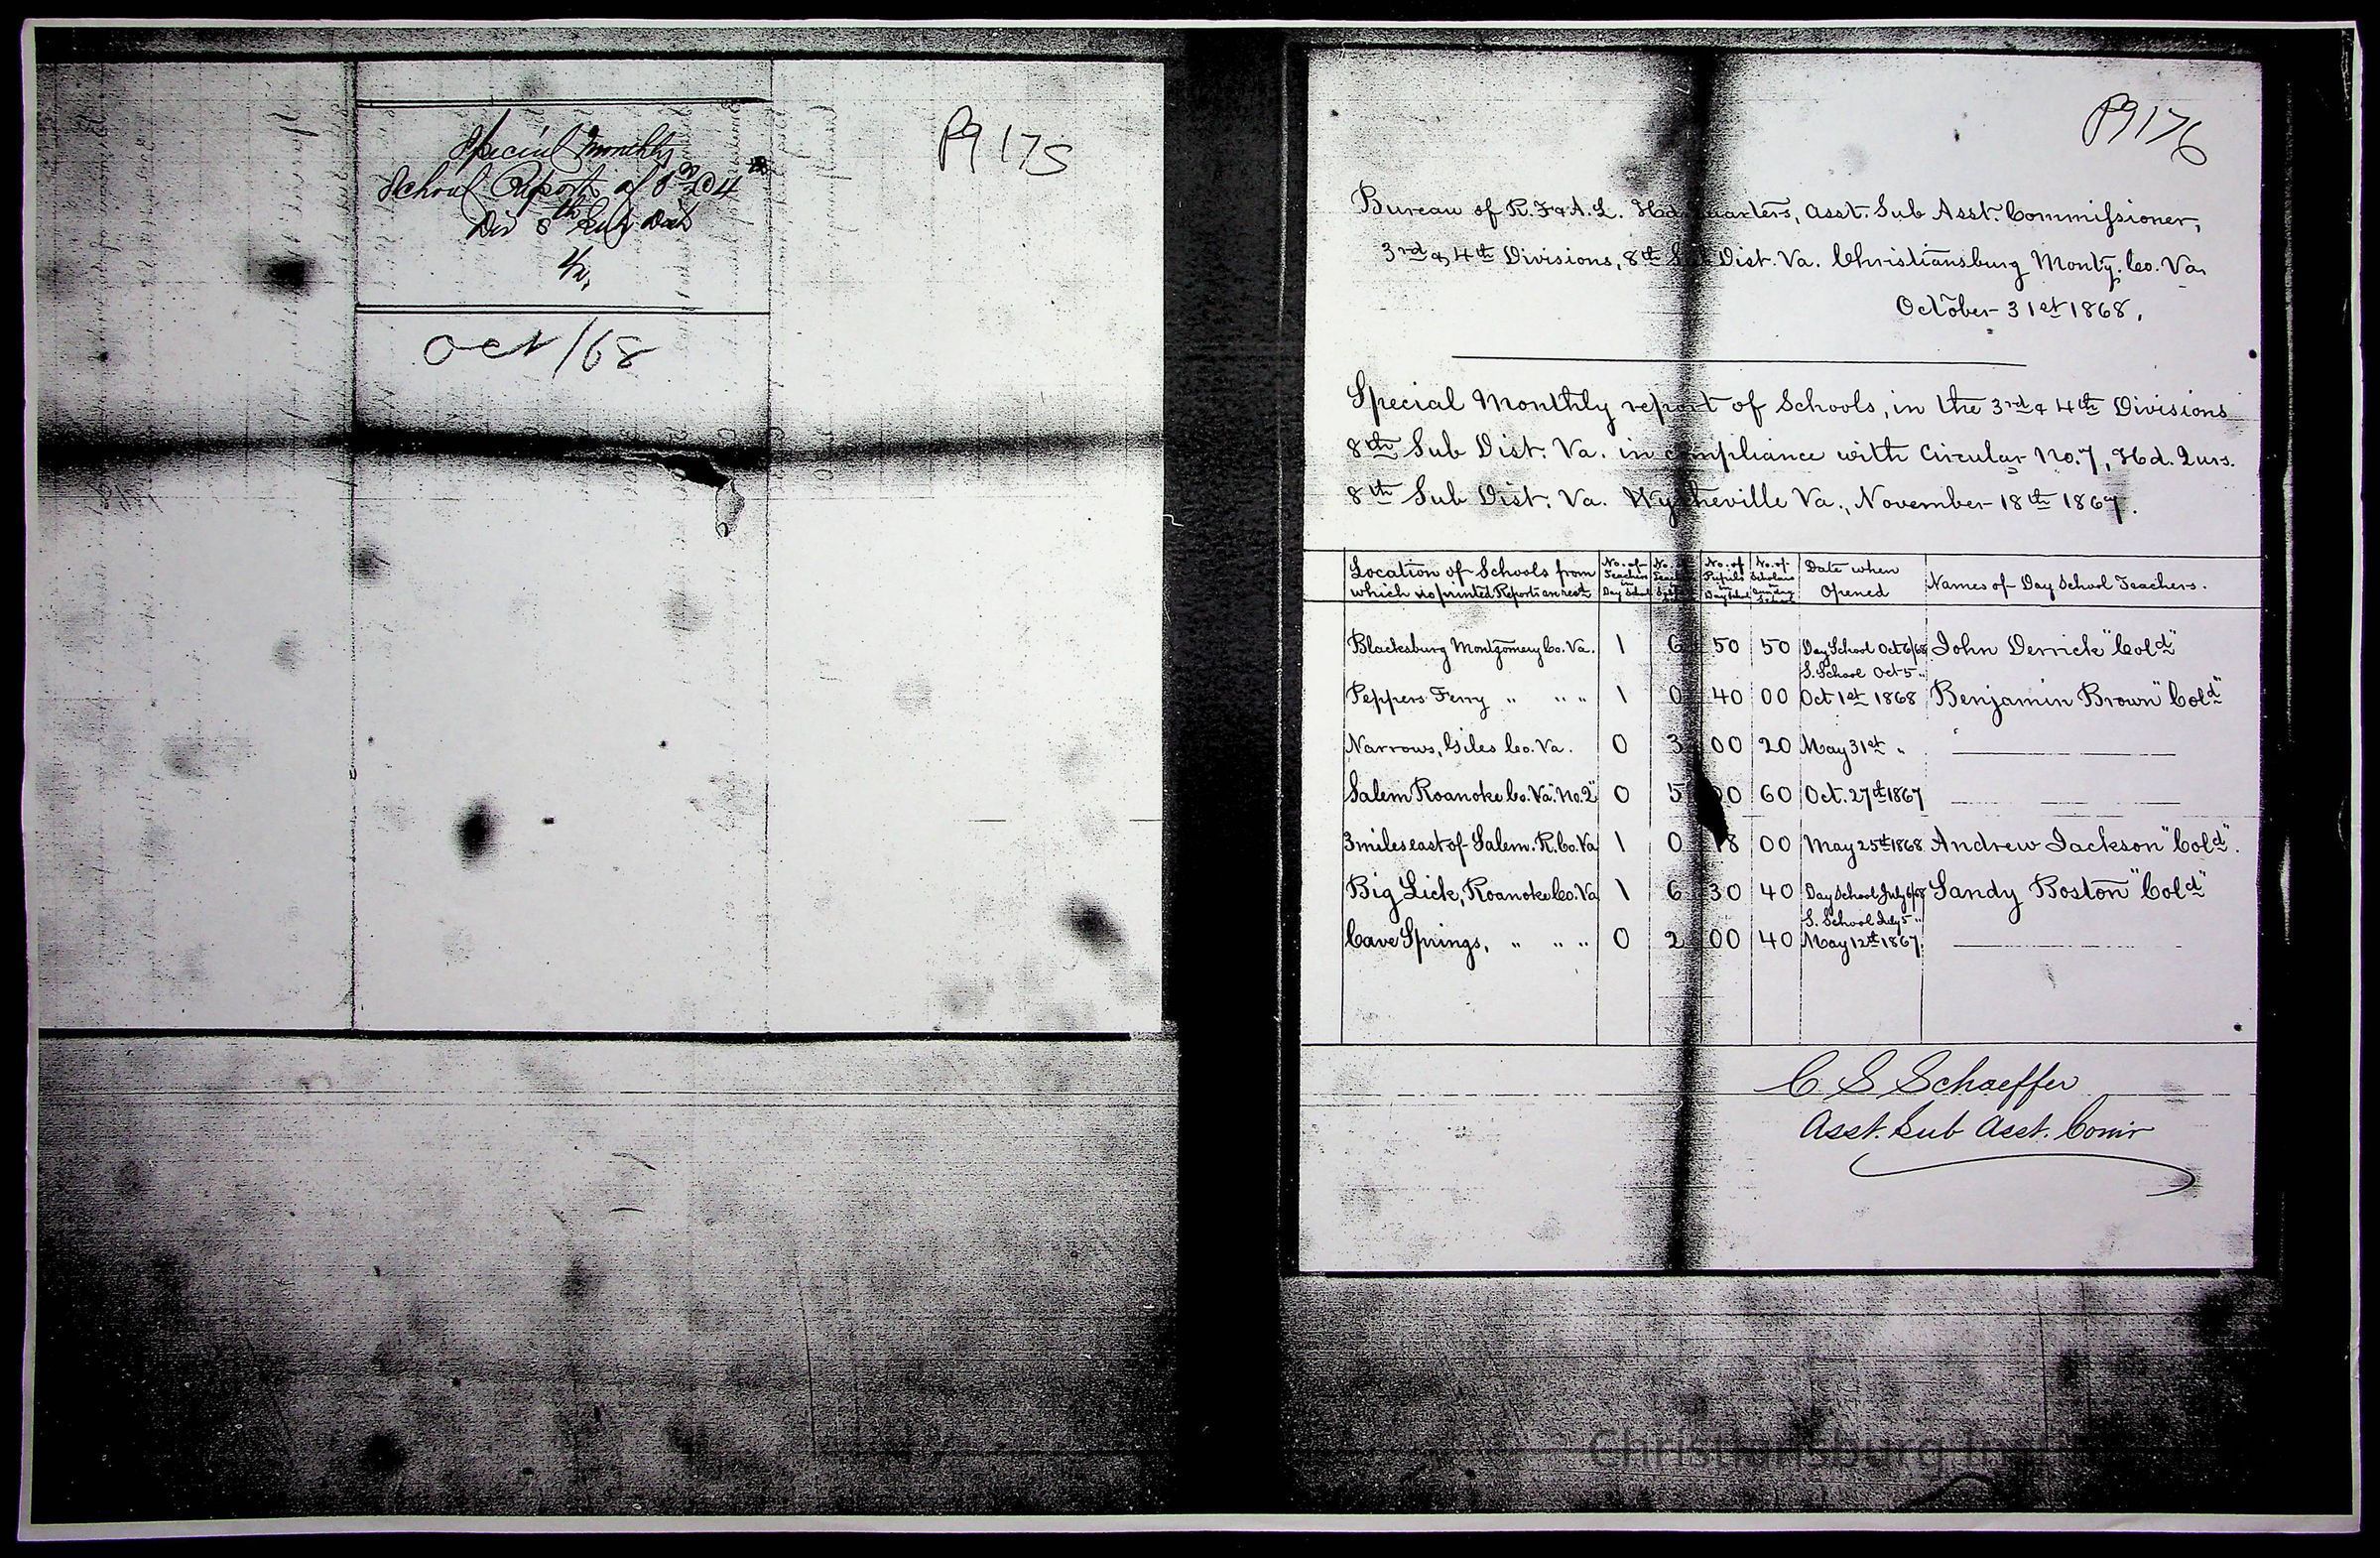 Special Monthly
School Report of 3rd & 4th
Div 8th Sub Dist
Va,
Oct/68
Pg 175
Pg 176
Bureau of R. F. & A. L. Hd. Quarters, Asst. Sub Asst. Commissioner,
3rd & 4th Divisions, 8th Sub Dist. Va. Christiansburg Montg. Co. Va.
October 31st 1868,
Special Monthly report of Schools, in the 3rd & 4th Divisions
8th Sub Dist. Va. in compliance with Circular No. 7, Hd. Qurs.
8th Sub Dist. Va. Wytheville Va., November 18th 1867.
Location of Schools from which no printed Reports are sent | No. of Teachers in Day School | No. Teachers | No. of Pupils in Day School | No. of Scholars Sunday School | Date when Opened | Names of Day School Teachers.
Blacksburg Montgomery Co. Va. 1 6 50 50 Day School Oct 6/68 John Derrick "Cold"
S. School Oct 5 "
Peppers Ferry " " " 1 0 40 00 Oct 1st 1868 Benjamin Brown "Cold"
Narrows, Giles Co. Va. 0 3 00 20 May 31st "
Salem Roanoke Co. Va. "No. 2" 0 5 00 60 Oct. 27th 1867
3 miles east of Salem. R. Co. Va 1 0 18 00 May 25th 1868 Andrew Jackson "Cold".
Big Lick, Roanoke Co. Va 1 6 30 40 Day School July 6/68 Sandy Boston "Cold"
S. School July 5 "
Cave Springs, " " " 0 2 00 40 May 12th 1867.
C S Schaeffer
Asst. Sub Asst. Comr
Christiansburg